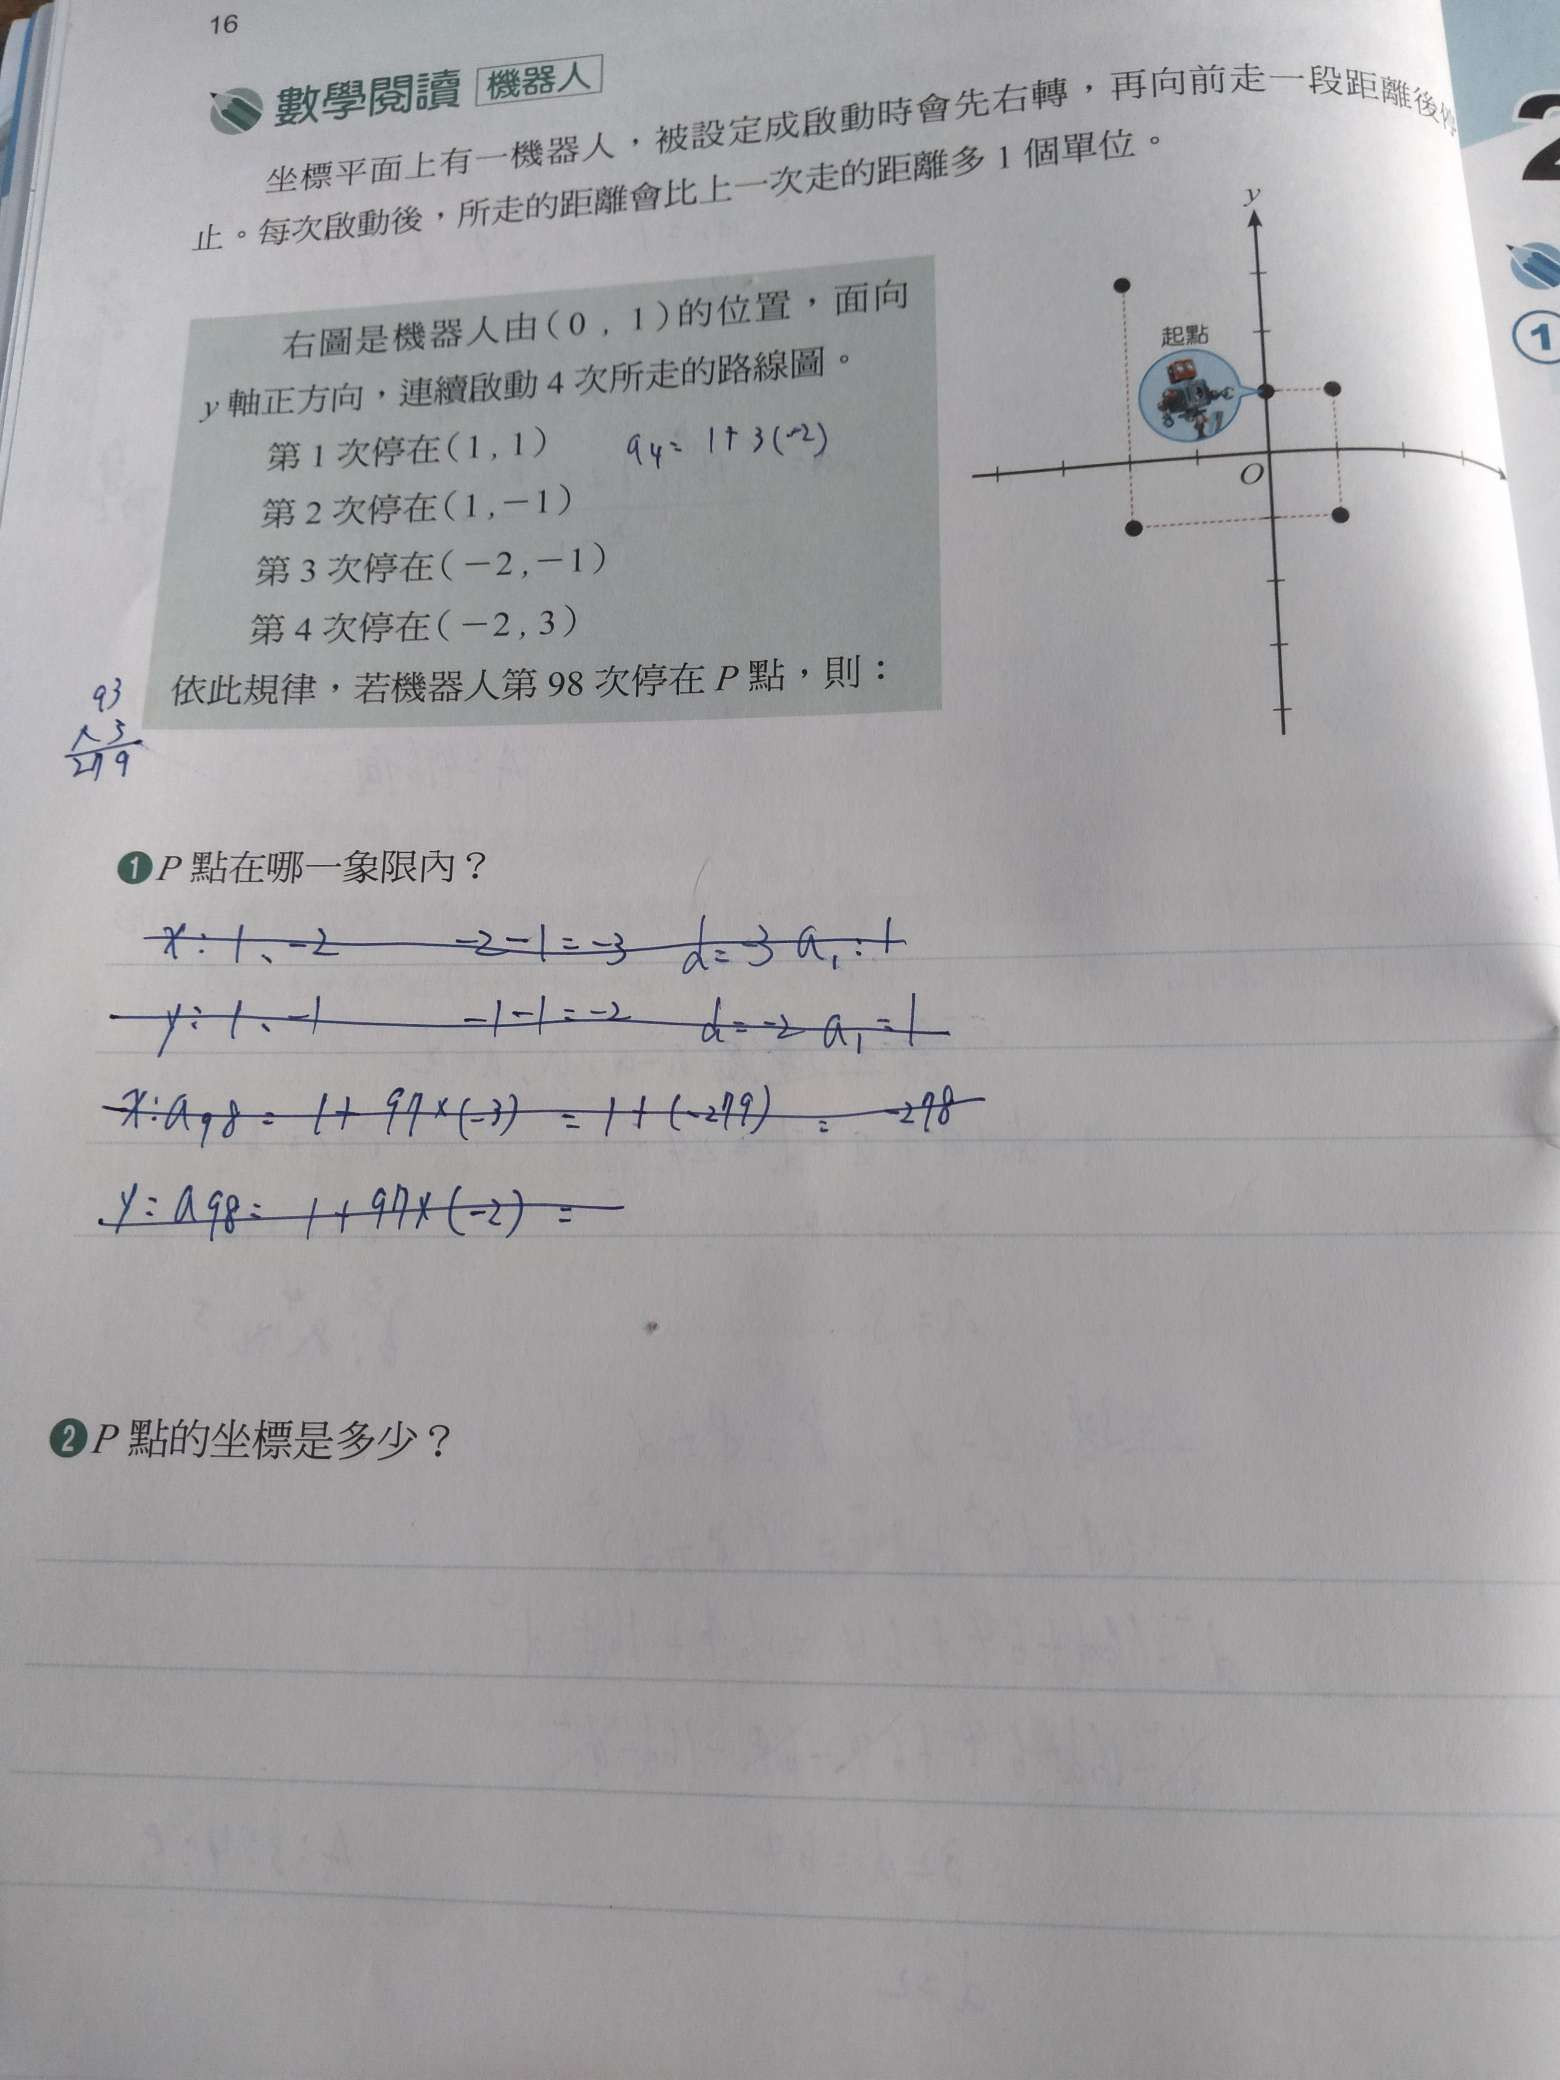 16
數學閱讀 機器人
坐標平面上有一機器人，被設定成啟動時會先右轉，再向前走一段距離後停
止。每次啟動後，所走的距離會比上一次走的距離多 1 個單位。
右圖是機器人由(0 , 1)的位置，面向
y 軸正方向，連續啟動 4 次所走的路線圖。
第 1 次停在(1 , 1) a4= 1+3(-2)
第 2 次停在(1 ,－1)
第 3 次停在(－2 ,－1)
第 4 次停在(－2 , 3)
依此規律，若機器人第 98 次停在 P 點，則：
y
起點
O
93
×3
279
❶ P 點在哪一象限內？
x: 1、-2 -2-1=-3 d=-3 a1:1
y: 1、-1 -1-1=-2 d=-2 a1=1
x:a98= 1+97×(-3) = 1+(-279) = -278
y: a98= 1+97×(-2) =
❷ P 點的坐標是多少？
2
1